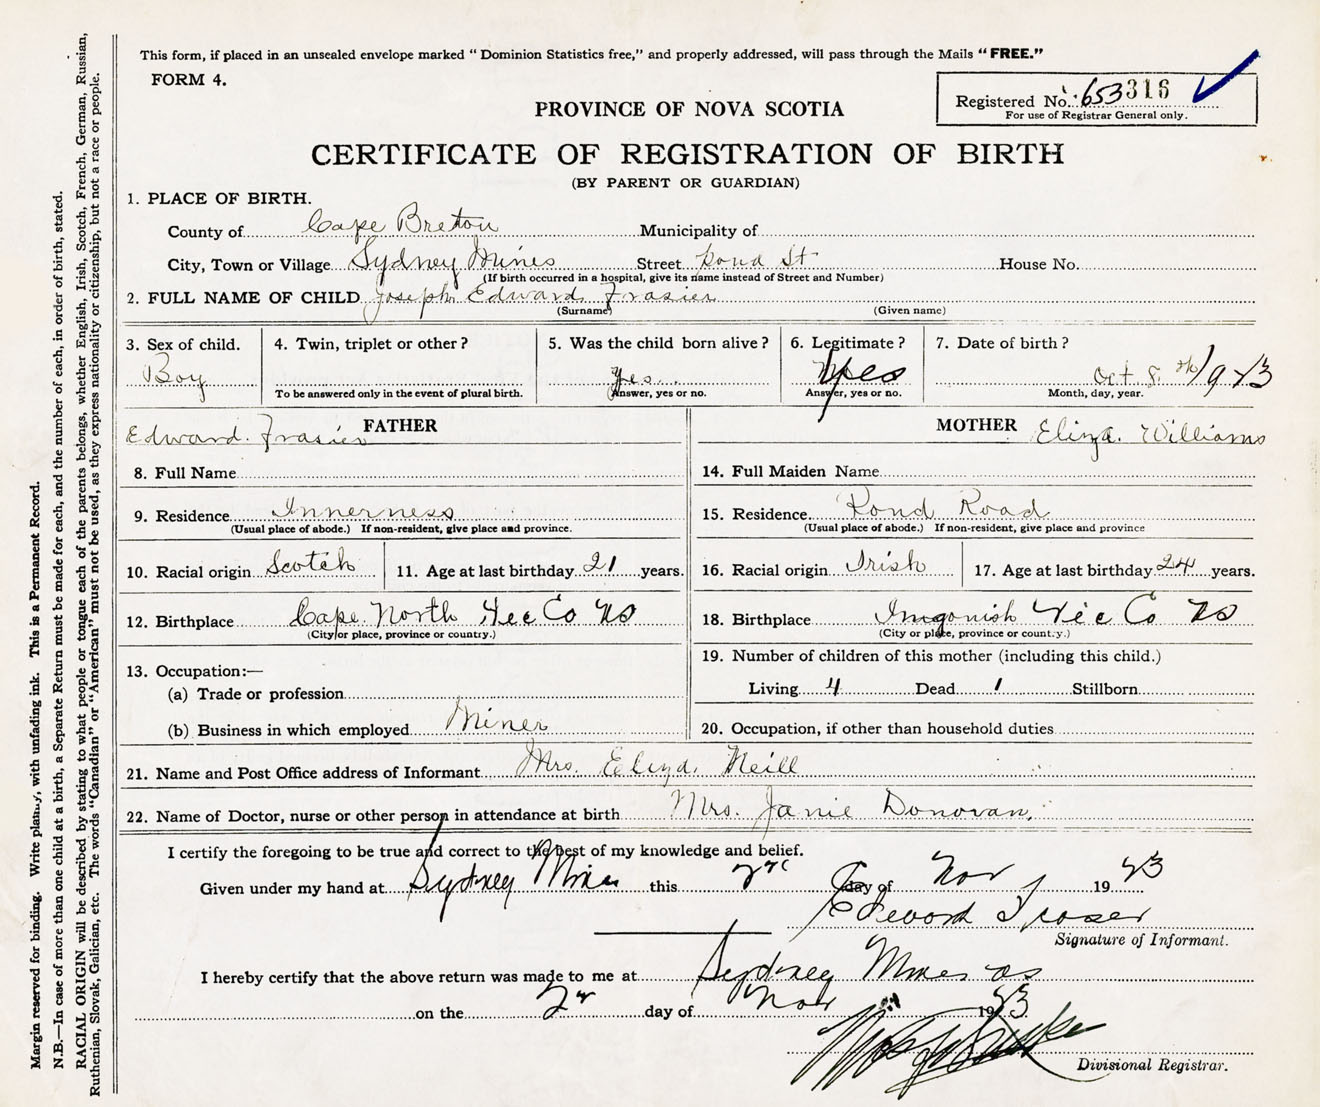 This form, if placed in an unsealed envelope marked "Dominion Statistics free," and properly addressed, will pass through the Mails "FREE."
FORM 4.
Registered No. 653316
For use of Registrar General only.
PROVINCE OF NOVA SCOTIA
CERTIFICATE OF REGISTRATION OF BIRTH
(BY PARENT OR GUARDIAN)
1. PLACE OF BIRTH.
County of Cape Breton Municipality of
City, Town or Village Sydney Mines Street Pond St House No.
(If birth occurred in a hospital, give its name instead of Street and Number)
2. FULL NAME OF CHILD Joseph Edward Frasier
(Surname) (Given name)
3. Sex of child. 4. Twin, triplet or other? 5. Was the child born alive? 6. Legitimate? 7. Date of birth?
Boy yes yes Oct 8th 1923
To be answered only in the event of plural birth. Answer, yes or no. Answer, yes or no. Month, day, year.
Edward Frasier FATHER MOTHER Eliza Williams
8. Full Name 14. Full Maiden Name
9. Residence Innerness 15. Residence Pond Road
(Usual place of abode.) If non-resident, give place and province. (Usual place of abode.) If non-resident, give place and province
10. Racial origin Scotch 11. Age at last birthday 21 years. 16. Racial origin Irish 17. Age at last birthday 24 years.
12. Birthplace Cape North Vic Co NS 18. Birthplace Imgonish Vic Co NS
(City or place, province or country.) (City or place, province or country.)
13. Occupation:— 19. Number of children of this mother (including this child.)
(a) Trade or profession Living 4 Dead 1 Stillborn
(b) Business in which employed Miner 20. Occupation, if other than household duties
21. Name and Post Office address of Informant Mrs. Eliza Neill
22. Name of Doctor, nurse or other person in attendance at birth Mrs. Janie Donovan.
I certify the foregoing to be true and correct to the best of my knowledge and belief.
Given under my hand at Sydney Mines this day of Nov 1923
Edward Fraser
Signature of Informant.
I hereby certify that the above return was made to me at Sydney Mines
on the day of Nov 1923
Divisional Registrar.
Margin reserved for binding. Write plainly, with unfading ink. This is a Permanent Record.
N.B.—In case of more than one child at a birth, a Separate Return must be made for each, and the number of each, in order of birth, stated.
RACIAL ORIGIN will be described by stating to what people or tongue each of the parents belongs, whether English, Irish, Scotch, French, German, Russian,
Ruthenian, Slovak, Galician, etc. The words "Canadian" or "American" must not be used, as they express nationality or citizenship, but not a race or people.